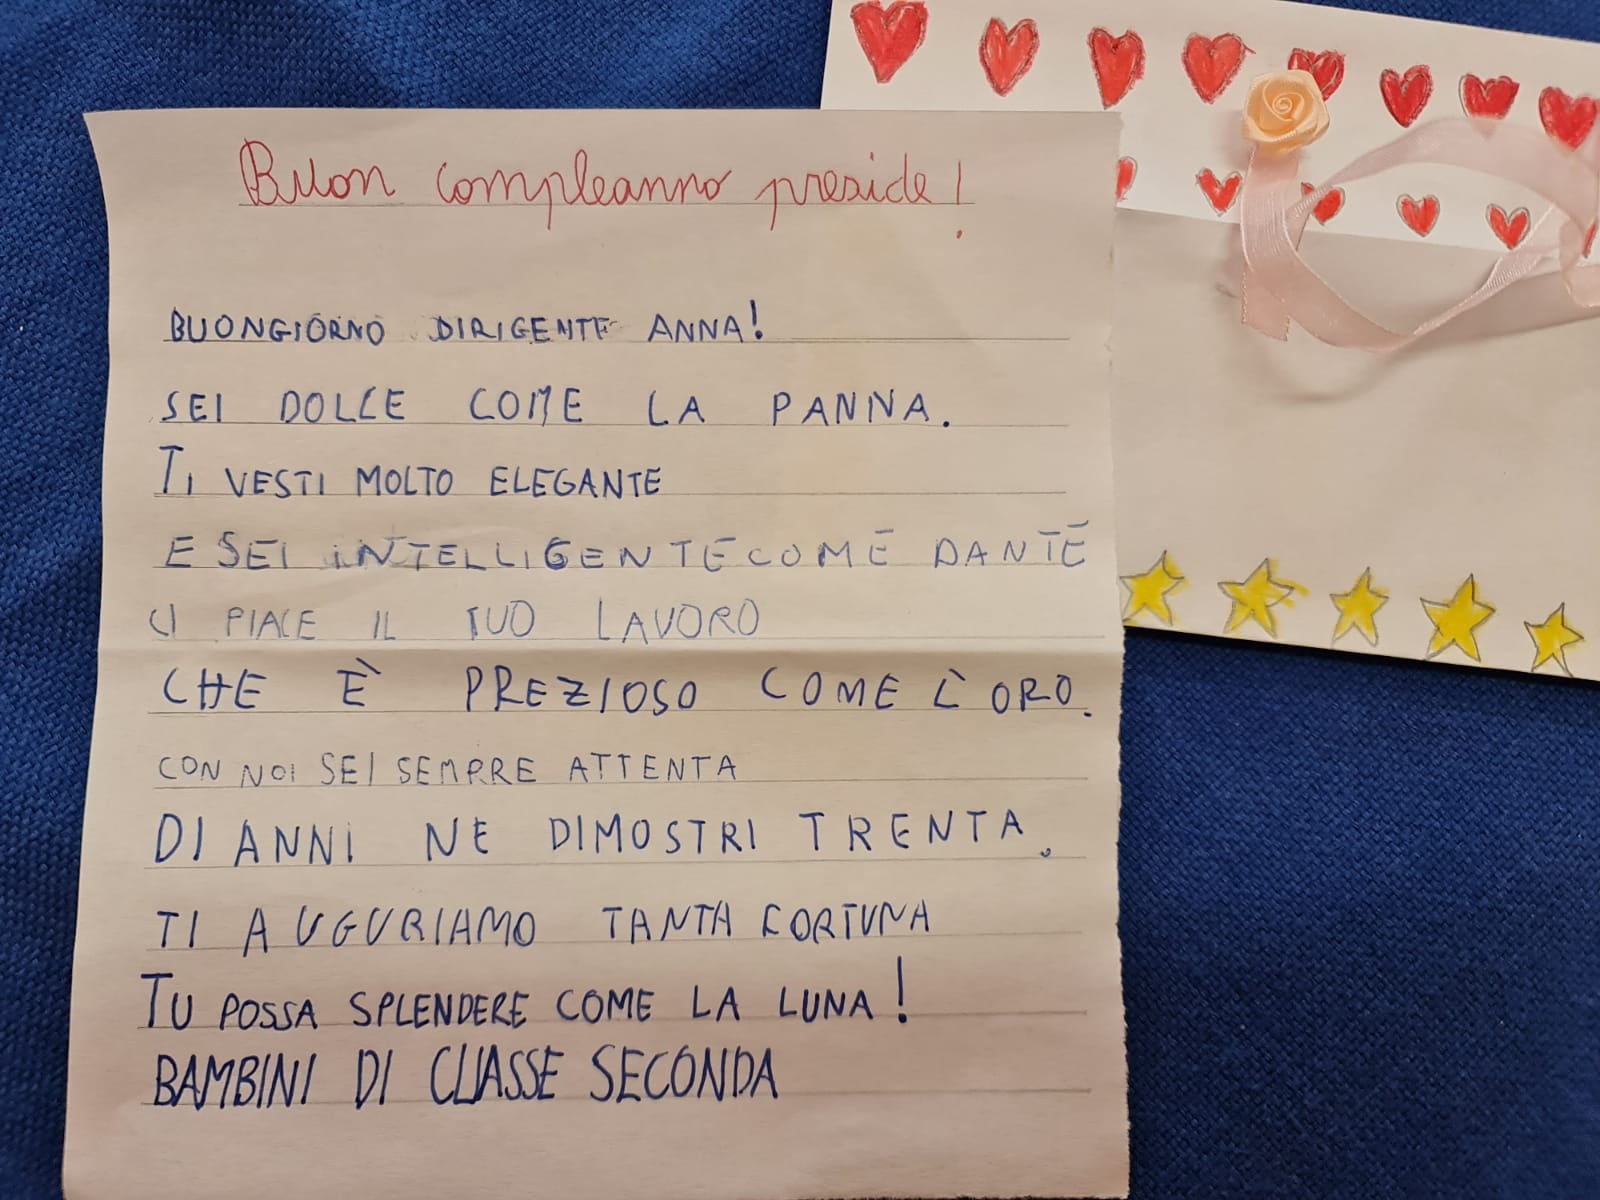 Buon compleanno preside!
BUONGIORNO DIRIGENTE ANNA!
SEI DOLCE COME LA PANNA.
TI VESTI MOLTO ELEGANTE
E SEI INTELLIGENTE COME DANTE
CI PIACE IL TUO LAVORO
CHE È PREZIOSO COME L'ORO.
CON NOI SEI SEMPRE ATTENTA
DI ANNI NE DIMOSTRI TRENTA.
TI AUGURIAMO TANTA FORTUNA
TU POSSA SPLENDERE COME LA LUNA!
BAMBINI DI CLASSE SECONDA